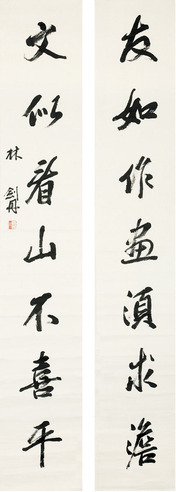 友如作畫須求澹
文似看山不喜平
林劍丹